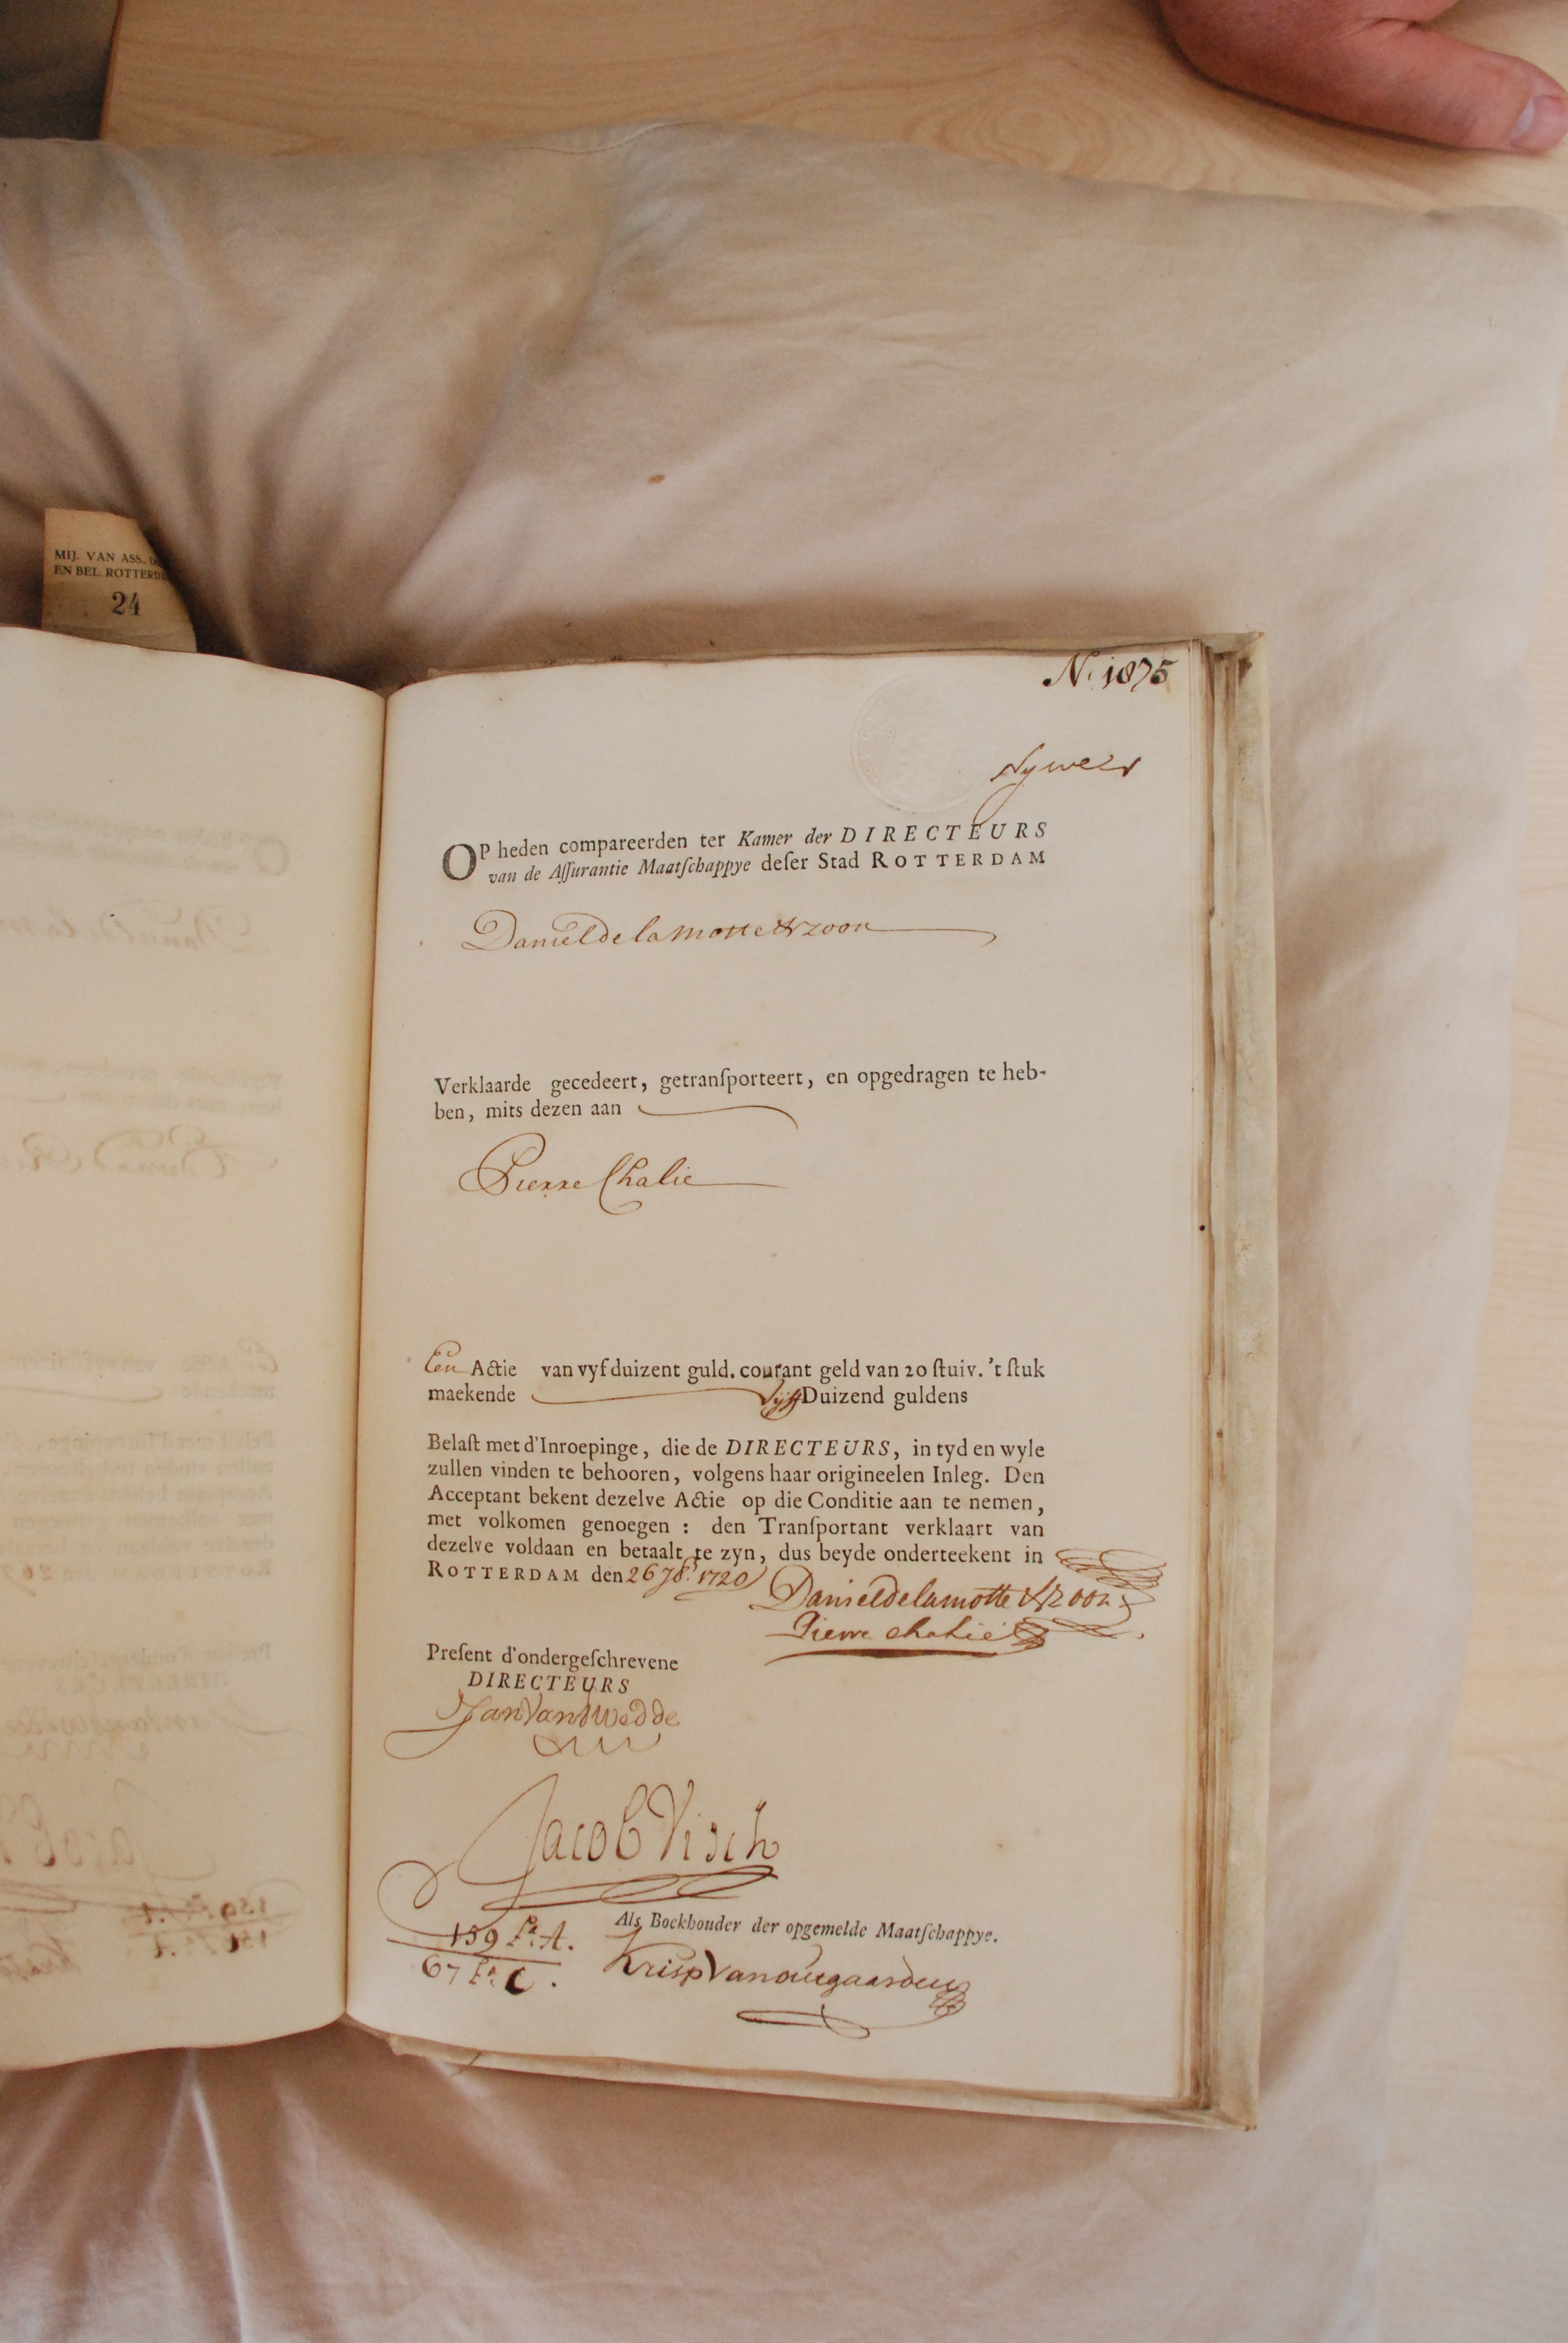 MIJ. VAN ASS.,
EN BEL. ROTTERD
24
N. 1875
OP heden compareerden ter Kamer der DIRECTEURS
van de Aſſurantie Maatſchappye deſer Stad ROTTERDAM
Daniel de la Motte & zoon
Verklaarde gecedeert, getranſporteert, en opgedragen te heb-
ben, mits dezen aan
Pierre Chalie
Een Actie van vyf duizent guld. courant geld van 20 ſtuiv. 't ſtuk
maekende Vijff Duizend guldens
Belaſt met d'Inroepinge, die de DIRECTEURS, in tyd en wyle
zullen vinden te behooren, volgens haar origineelen Inleg. Den
Acceptant bekent dezelve Actie op die Conditie aan te nemen,
met volkomen genoegen : den Tranſportant verklaart van
dezelve voldaan en betaalt te zyn, dus beyde onderteekent in
ROTTERDAM den 26 7br. 1720
Daniel de la motte & Zoon
Pierre chalié
Preſent d'ondergeſchrevene
DIRECTEURS
Jan Vant Wedde
Jacob Visch
159 Fo. A.
67 Fo. C.
Als Boekhouder der opgemelde Maatſchappye.